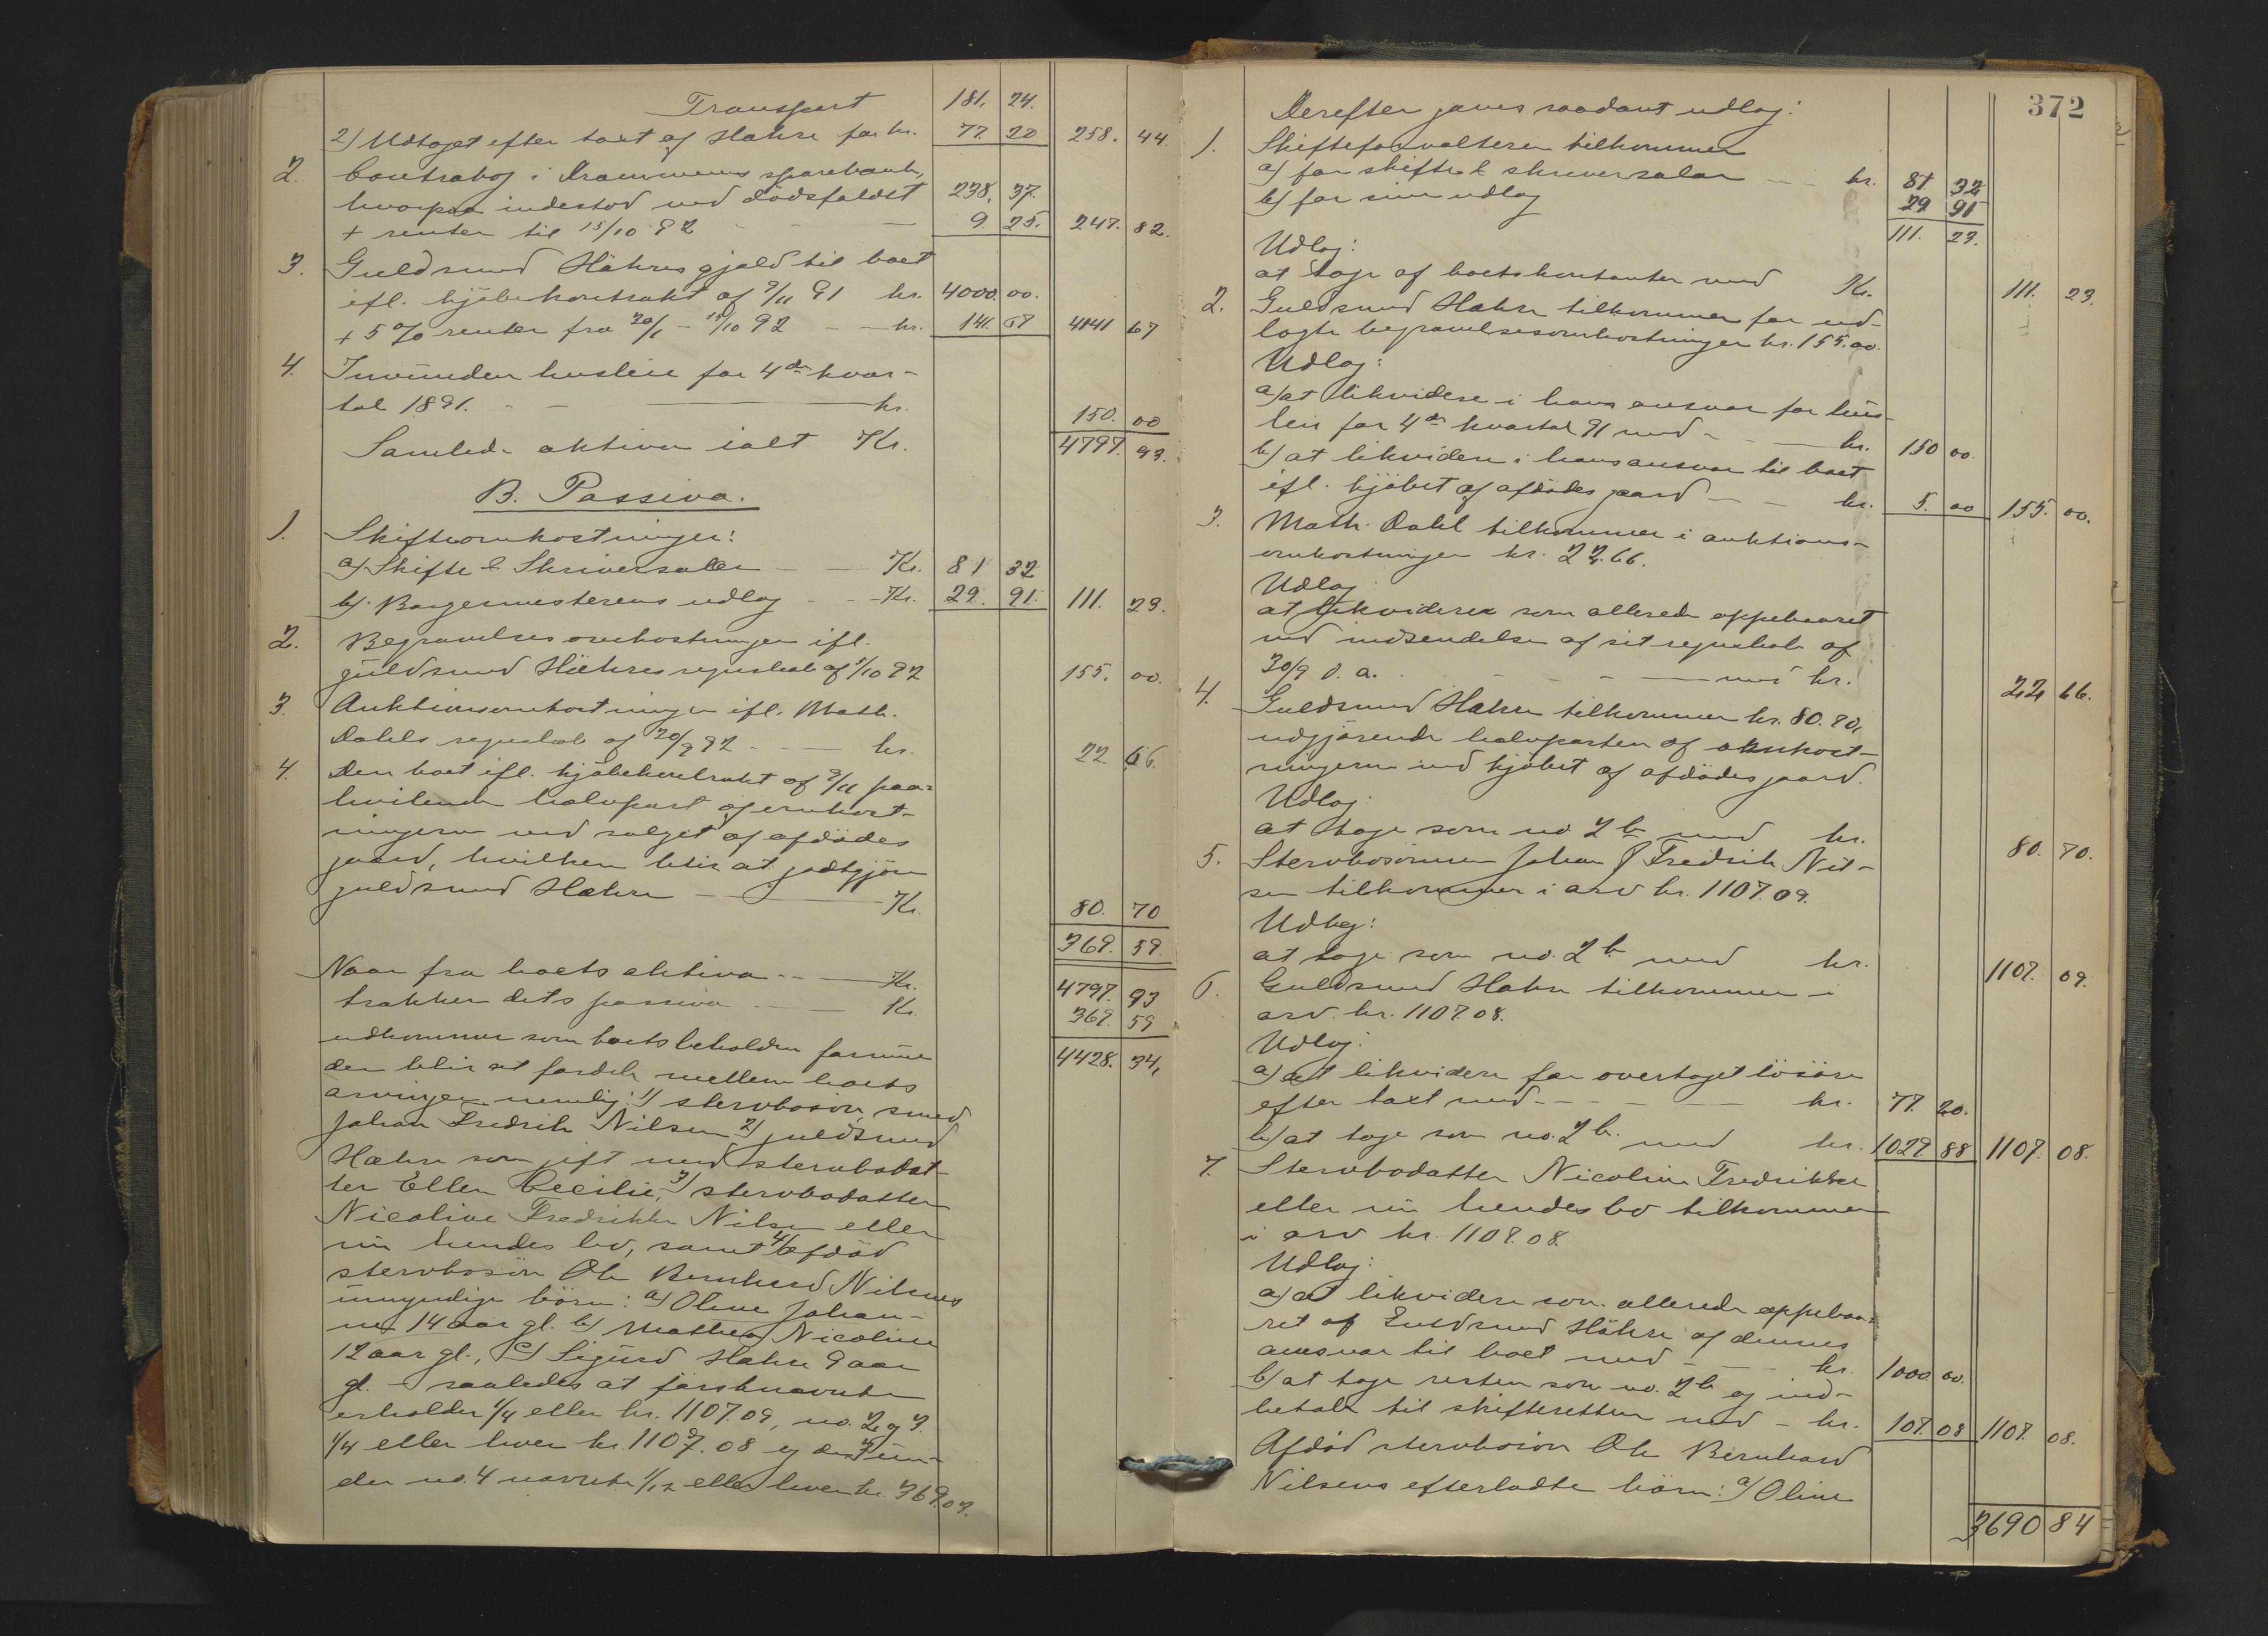 Transport 181. 24.
2) Udtaget efter taxt af Hæhre for kr. 77. 20 258. 44.
2. Contrabog i Drammens sparebank,
hvorpaa indestod ved dödsfaldet 238. 37.
+ renter til 15/10 92 - - - 9. 25. 247. 82.
3. Guldsmed Hæhres gjæld til boet
ifl. kjöbekontrakt af 9/11 91 kr. 4000. 00.
+ 5 % renter fra 30/1 - 15/10 92 - kr. 141. 67 4141 67
4. Invunden husleie for 4de kvar-
tal 1891. - - kr. 150. 00
Samlede aktiva ialt Kr. 4797. 93.
B. Passiva.
1. Skifteomkostninger:
a) Skifte & Skriversalær - - Kr. 81 32
b) Borgermesterens udlæg - - Kr. 29. 91. 111. 23.
2. Begravelsesomkostninger ifl.
guldsmed Hæhres regnskab af 5/10 92 155. 00.
3. Auktionsomkostninger ifl. Math.
Dahls regnskab af 30/9 92 - - kr. 22. 66.
4. Den boet ifl. kjöbekontrakt af 9/11 paa-
hvilende halvpart af omkost-
ningerne ved salget af afdödes
gaard, hvilken blir at godtgjöre
guldsmed Hæhre - Kr. 80. 70
369. 59.
Naar fra boets aktiva - - Kr. 4797. 93
trækkes dets passiva - Kr. 369. 59
udkommer som boets beholdne formue 4428. 34,
der blir at fordele mellem boets
arvinger nemlig: 1) stervbosön, smed
Johan Fredrik Nilsen 2) guldsmed
Hæhre som gift med stervbodat-
ter Ellen Cecilie, 3) stervbodatter
Nicoline Fredrikke Nilsen eller
nu hendes bo, samt 4) afdöd
stervbosön Ole Bernhard Nilsens
umyndige börn: a) Oline Johan-
ne 14 aar gl. b) Mathea Nicoline
12 aar gl., c) Sigurd Hæhre 9 aar
gl. - saaledes at förstnævnte
erholder 1/4 eller kr. 1107.09, no. 2 og 3.
1/4 eller hver kr. 1107.08 og de 3 un-
der no. 4 nævnte 1/12 eller hver kr. 369.03.
372
Derefter gaves saadant udlæg:
1. Skifteforvalteren tilkommer
a) for skifte & skriversalær - - kr. 81 32
b) for sine udlæg 29 91
111. 23.
Udlæg:
at tage af boets kontanter med Kr. 111. 23.
2. Guldsmed Hæhre tilkommer for ud-
lagte begravelsesomkostninger kr. 155.00.
Udlæg:
a) at likvidere i hans ansvar for hus-
leie for 4de kvartal 91 med - - kr. 150 00.
b) at likvidere i hans ansvar til boet
ifl. kjöbet af afdödes gaard - - kr. 5. 00 155. 00.
3. Math. Dahl tilkommer i auktions-
omkostninger kr. 22.66.
Udlæg
at likvidere som allerede oppebaaret
ved indsendelse af sit regnskab af
30/9 d. a. - - - med kr. 22 66.
4. Guldsmed Hæhre tilkommer kr. 80.70,
udgjörende halvparten af omkost-
ningerne ved kjöbet af afdödes gaard.
Udlæg:
at tage som no 2 b med kr. 80. 70.
5. Stervbosönnen Johan Fredrik Nil-
sen tilkommer i arv kr. 1107.09.
Udlæg:
at tage som no. 2 b med kr. 1107. 09.
6. Guldsmed Hæhre tilkommer i
arv kr. 1107.08.
Udlæg:
a) at likvidere for overtaget lösöre
efter taxt med - - - kr. 77. 20.
b) at tage som no. 2 b. med kr. 1029. 88 1107. 08.
7. Stervbodatter Nicoline Fredrikke
eller nu hendes bo tilkommer
i arv kr. 1107.08.
Udlæg:
a) at likvidere som allerede oppebaa-
ret af Guldsmed Hæhre af dennes
ansvar til boet med - - kr. 1000. 00.
b) at tage resten som no. 2 b og ind-
betale til skifteretten med - kr. 107. 08 1107. 08.
Afdöd stervbosön Ole Bernhard
Nilsens efterladte börn: a) Oline
3690 84